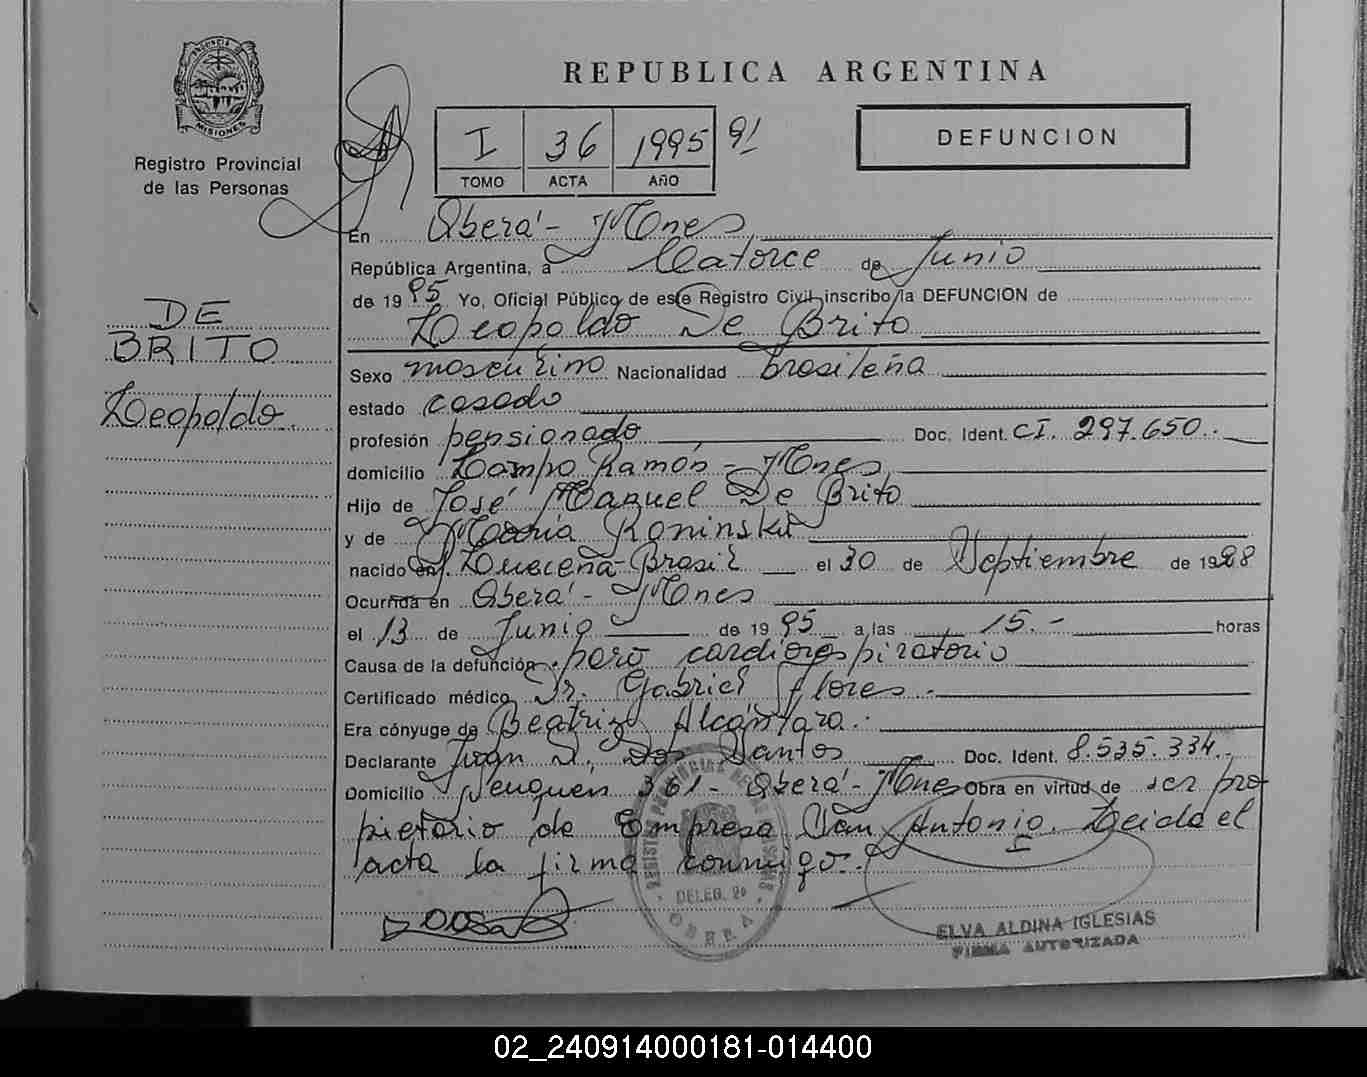 PROVINCIA DE
MISIONES
Registro Provincial
de las Personas
DE
BRITO
Leopoldo.
REPUBLICA ARGENTINA
I 36 1995 91
TOMO ACTA AÑO
DEFUNCION
En Oberá - Mnes
República Argentina, a Catorce de Junio
de 1995 Yo, Oficial Público de este Registro Civil inscribo la DEFUNCION de
Leopoldo De Brito
Sexo masculino Nacionalidad brasileña
estado casado
profesión pensionado Doc. Ident. CI. 297.650.
domicilio Campo Ramón - Mnes
Hijo de José Manuel De Brito
y de María Koninski
nacido en Brasil el 30 de Septiembre de 19
Ocurrida en Oberá - Mnes
el 13 de Junio de 1995 a las 15.- horas
Causa de la defunción paro cardiorespiratorio
Certificado médico Dr. Gabriel Flores.
Era cónyuge de Beatriz Alcántara.
Declarante Juan D. Dos Santos Doc. Ident. 8.535.334.
Domicilio Neuquen 361 - Oberá - Mnes Obra en virtud de ser pro
pietario de Empresa San Antonio. Leida el
acta la firma conmigo.
DELEG. 2º
OBERA
ELVA ALDINA IGLESIAS
FIRMA AUTORIZADA
02_240914000181-014400